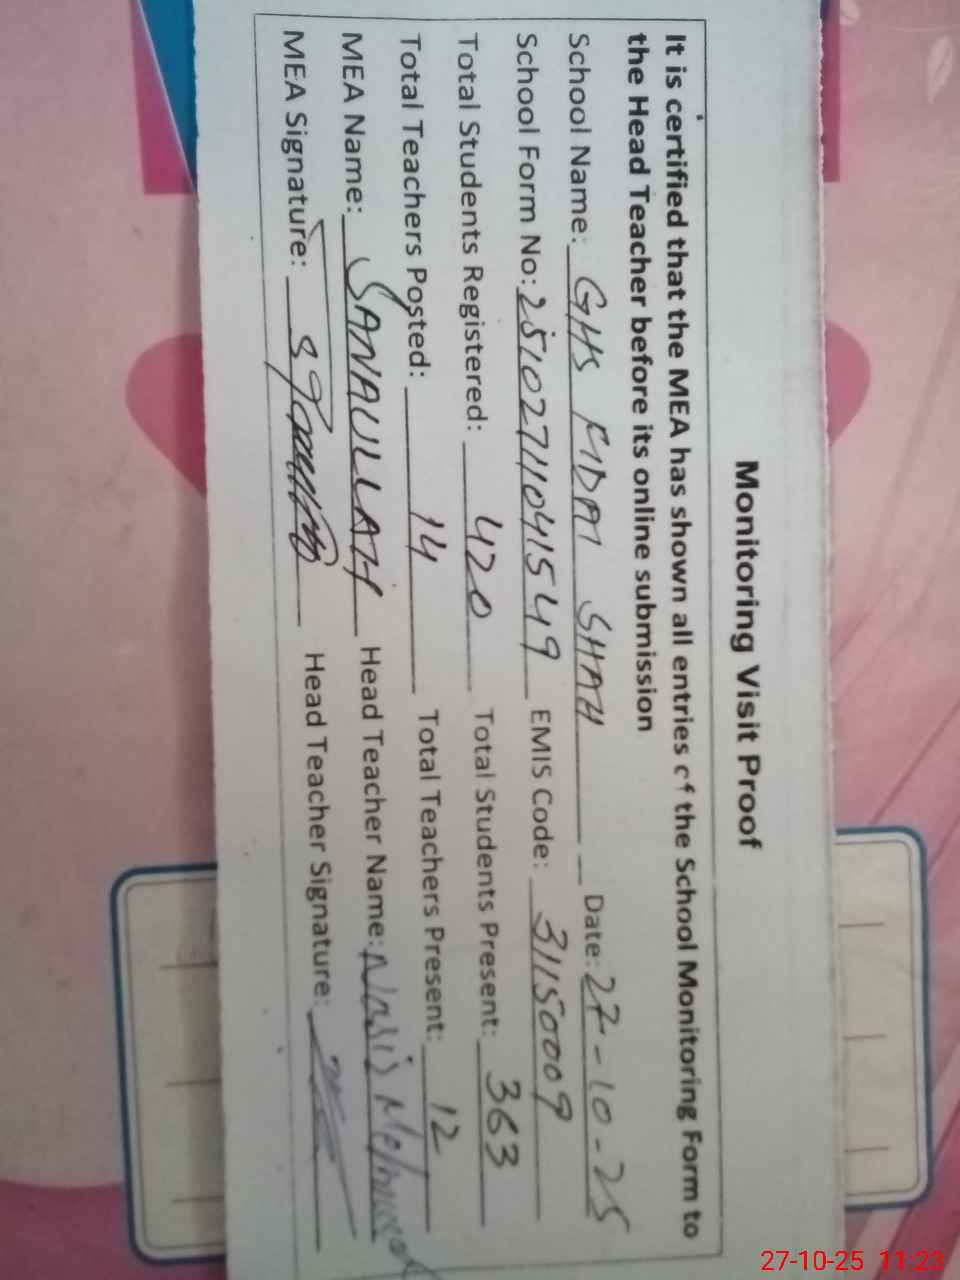 Monitoring Visit Proof
It is certified that the MEA has shown all entries of the School Monitoring Form to
the Head Teacher before its online submission
School Name: GHS MDAT SHAH Date: 27-10-25
School Form No: 25102711041549 EMIS Code: 31150009
Total Students Registered: 420 Total Students Present: 363
Total Teachers Posted: 14 Total Teachers Present: 12
MEA Name: SANAULLAH Head Teacher Name: Nasir Mehmood
MEA Signature: Head Teacher Signature:
27-10-25 11:23